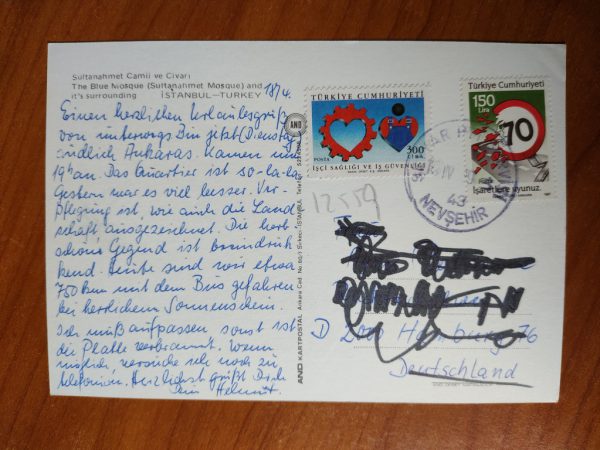 Sultanahmet Camii ve Civarı
The Blue Mosque (Sultanahmet Mosque) and
it's surrounding İSTANBUL - TURKEY
18/4.
Einen herzlichen Urlaubsgruß
von unterwegs. Bin jetzt (Dienstag
südlich Ankaras. Kamen um
19h an. Das Quartier ist so-la-la.
Gestern war es viel besser. Ver-
pflegung ist, wie auch die Land
schaft ausgezeichnet. Die herb
schöne Gegend ist beeindruk
kend. Heute sind wir etwa
750 km mit dem Bus gefahren
bei herrlichem Sonnenschein.
Ich muß aufpassen sonst ist
die Platte verbrannt. Wenn
möglich, versuche ich noch zu
telefonieren. Herzlichst grüßt Dich
Dein Helmut.
AND KARTPOSTAL Ankara Cad. No. Sirkeci-İSTANBUL Telefon:
AND
TÜRKİYE CUMHURİYETİ
POSTA
300
LİRA
İŞÇİ SAĞLIĞI VE İŞ GÜVENLİĞİ
Türkiye Cumhuriyeti
150
Lira
70
İşaretlere uyunuz.
IV
43
NEVŞEHİR
12559
D 2000 Hamburg 76
Deutschland